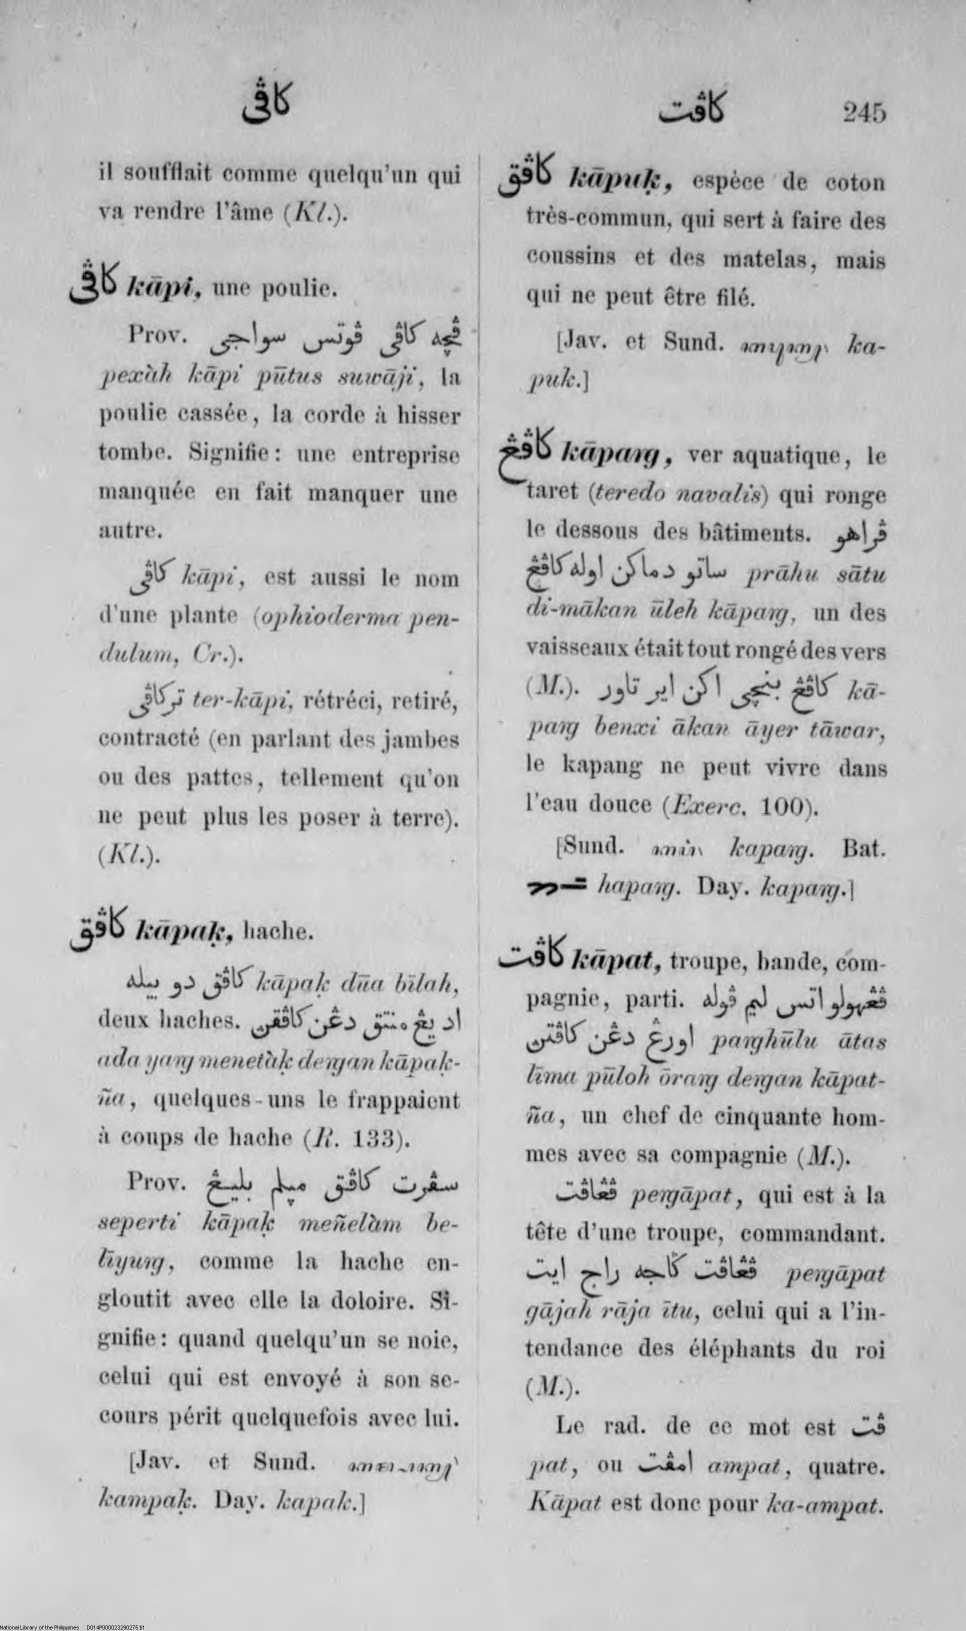 كاڤي
كاڤت
245
il soufflait comme quelqu'un qui
va rendre l'âme (Kl.).
كاڤي kāpi, une poulie.
Prov. ڤچه كاڤي ڤوتس سواجي
pexàh kāpi pūtus suwāji, la
poulie cassée, la corde à hisser
tombe. Signifie: une entreprise
manquée en fait manquer une
autre.
كاڤي kāpi, est aussi le nom
d'une plante (ophioderma pen-
dulum, Cr.).
تركاڤي ter-kāpi, rétréci, retiré,
contracté (en parlant des jambes
ou des pattes, tellement qu'on
ne peut plus les poser à terre).
(Kl.).
كاڤق kāpaḳ, hache.
كاڤق دو بيله kāpaḳ dūa bīlah,
deux haches. اد يڠ منتق دڠن كاڤقن
ada yaṅg menetàḳ deṅgan kāpaḳ-
ña, quelques-uns le frappaient
à coups de hache (R. 133).
Prov. سڤرت كاڤق ميلم بليڠ
seperti kāpaḳ meñelàm be-
līyuṅg, comme la hache en-
gloutit avec elle la doloire. Si-
gnifie: quand quelqu'un se noie,
celui qui est envoyé à son se-
cours périt quelquefois avec lui.
[Jav. et Sund.
kampaḳ. Day. kapak.]
كاڤق kāpuḳ, espèce de coton
très-commun, qui sert à faire des
coussins et des matelas, mais
qui ne peut être filé.
[Jav. et Sund. ka-
puk.]
كاڤڠ kāpaṅg, ver aquatique, le
taret (teredo navalis) qui ronge
le dessous des bâtiments. ڤراهو
ساتو دماكن اوله كاڤڠ prāhu sātu
di-mākan ūleh kāpaṅg, un des
vaisseaux était tout rongé des vers
(M.). كاڤڠ بنچي اكن اير تاور kā-
paṅg benxi ākan āyer tāwar,
le kapang ne peut vivre dans
l'eau douce (Exerc. 100).
[Sund. kapaṅg. Bat.
hapaṅg. Day. kapaṅg.]
كاڤت kāpat, troupe, bande, com-
pagnie, parti. ڤڠهولو اتس ليم ڤوله
اورڠ دڠن كاڤتن paṅghūlu ātas
līma pūloh ōraṅg deṅgan kāpat-
ña, un chef de cinquante hom-
mes avec sa compagnie (M.).
ڤڠاڤت peṅgāpat, qui est à la
tête d'une troupe, commandant.
ڤڠاڤت ݢاجه راج ايت peṅgāpat
gājah rāja ītu, celui qui a l'in-
tendance des éléphants du roi
(M.).
Le rad. de ce mot est ڤت
pat, ou امڤت ampat, quatre.
Kāpat est donc pour ka-ampat.
National Library of the Philippines